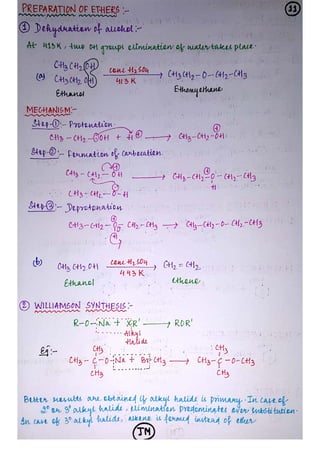 PREPARATION OF ETHERS :-
11
① Dehydration of alcohol :-
At 413 K, two OH groups elimination of water takes place.
(a) CH3CH2OH
CH3CH2OH
conc H2SO4
413 K
CH3CH2-O-CH2-CH3
Ethanol
Ethoxyethane
MECHANISM:-
Step-①:- Protonation
CH3-CH2-OH + H⊕ → CH3-CH2-OH
⊕
Step-②:- Formation of Carbocation.
CH3-CH2-OH → CH3-CH2-O-CH2-CH3
⊕
H
CH3-CH2-O-H
Step③:- Deprotonation
CH3-CH2-O-CH2-CH3 → CH3-CH2-O-CH2-CH3
⊕
H
(b) CH3CH2OH conc H2SO4 CH2=CH2
443 K
Ethanol
ethene
② WILLIAMSON SYNTHESIS:-
R-O-Na + XR' → ROR'
Alkyl
Halide
Eg:-
CH3 CH3
CH3-C-O-Na + Br-CH3 → CH3-C-O-CH3
CH3 CH3
Better results are obtained if alkyl halide is primary. In case of
2° or 3° alkyl halide, elimination predominates over substitution.
In case of 3° alkyl halide, alkene is formed instead of ether
JM